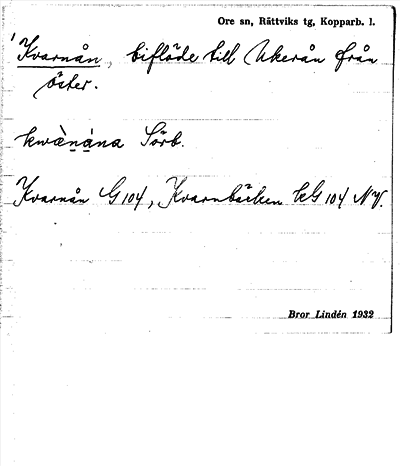 Ore sn, Rättviks tg, Kopparb. l.
Kvarnån, biflöde till Ukerån från
öster.
kwæ̀nạ́na Sörb.
Kvarnån G 104, Kvarnbäcken EG 104 NV.
Bror Lindén 1932